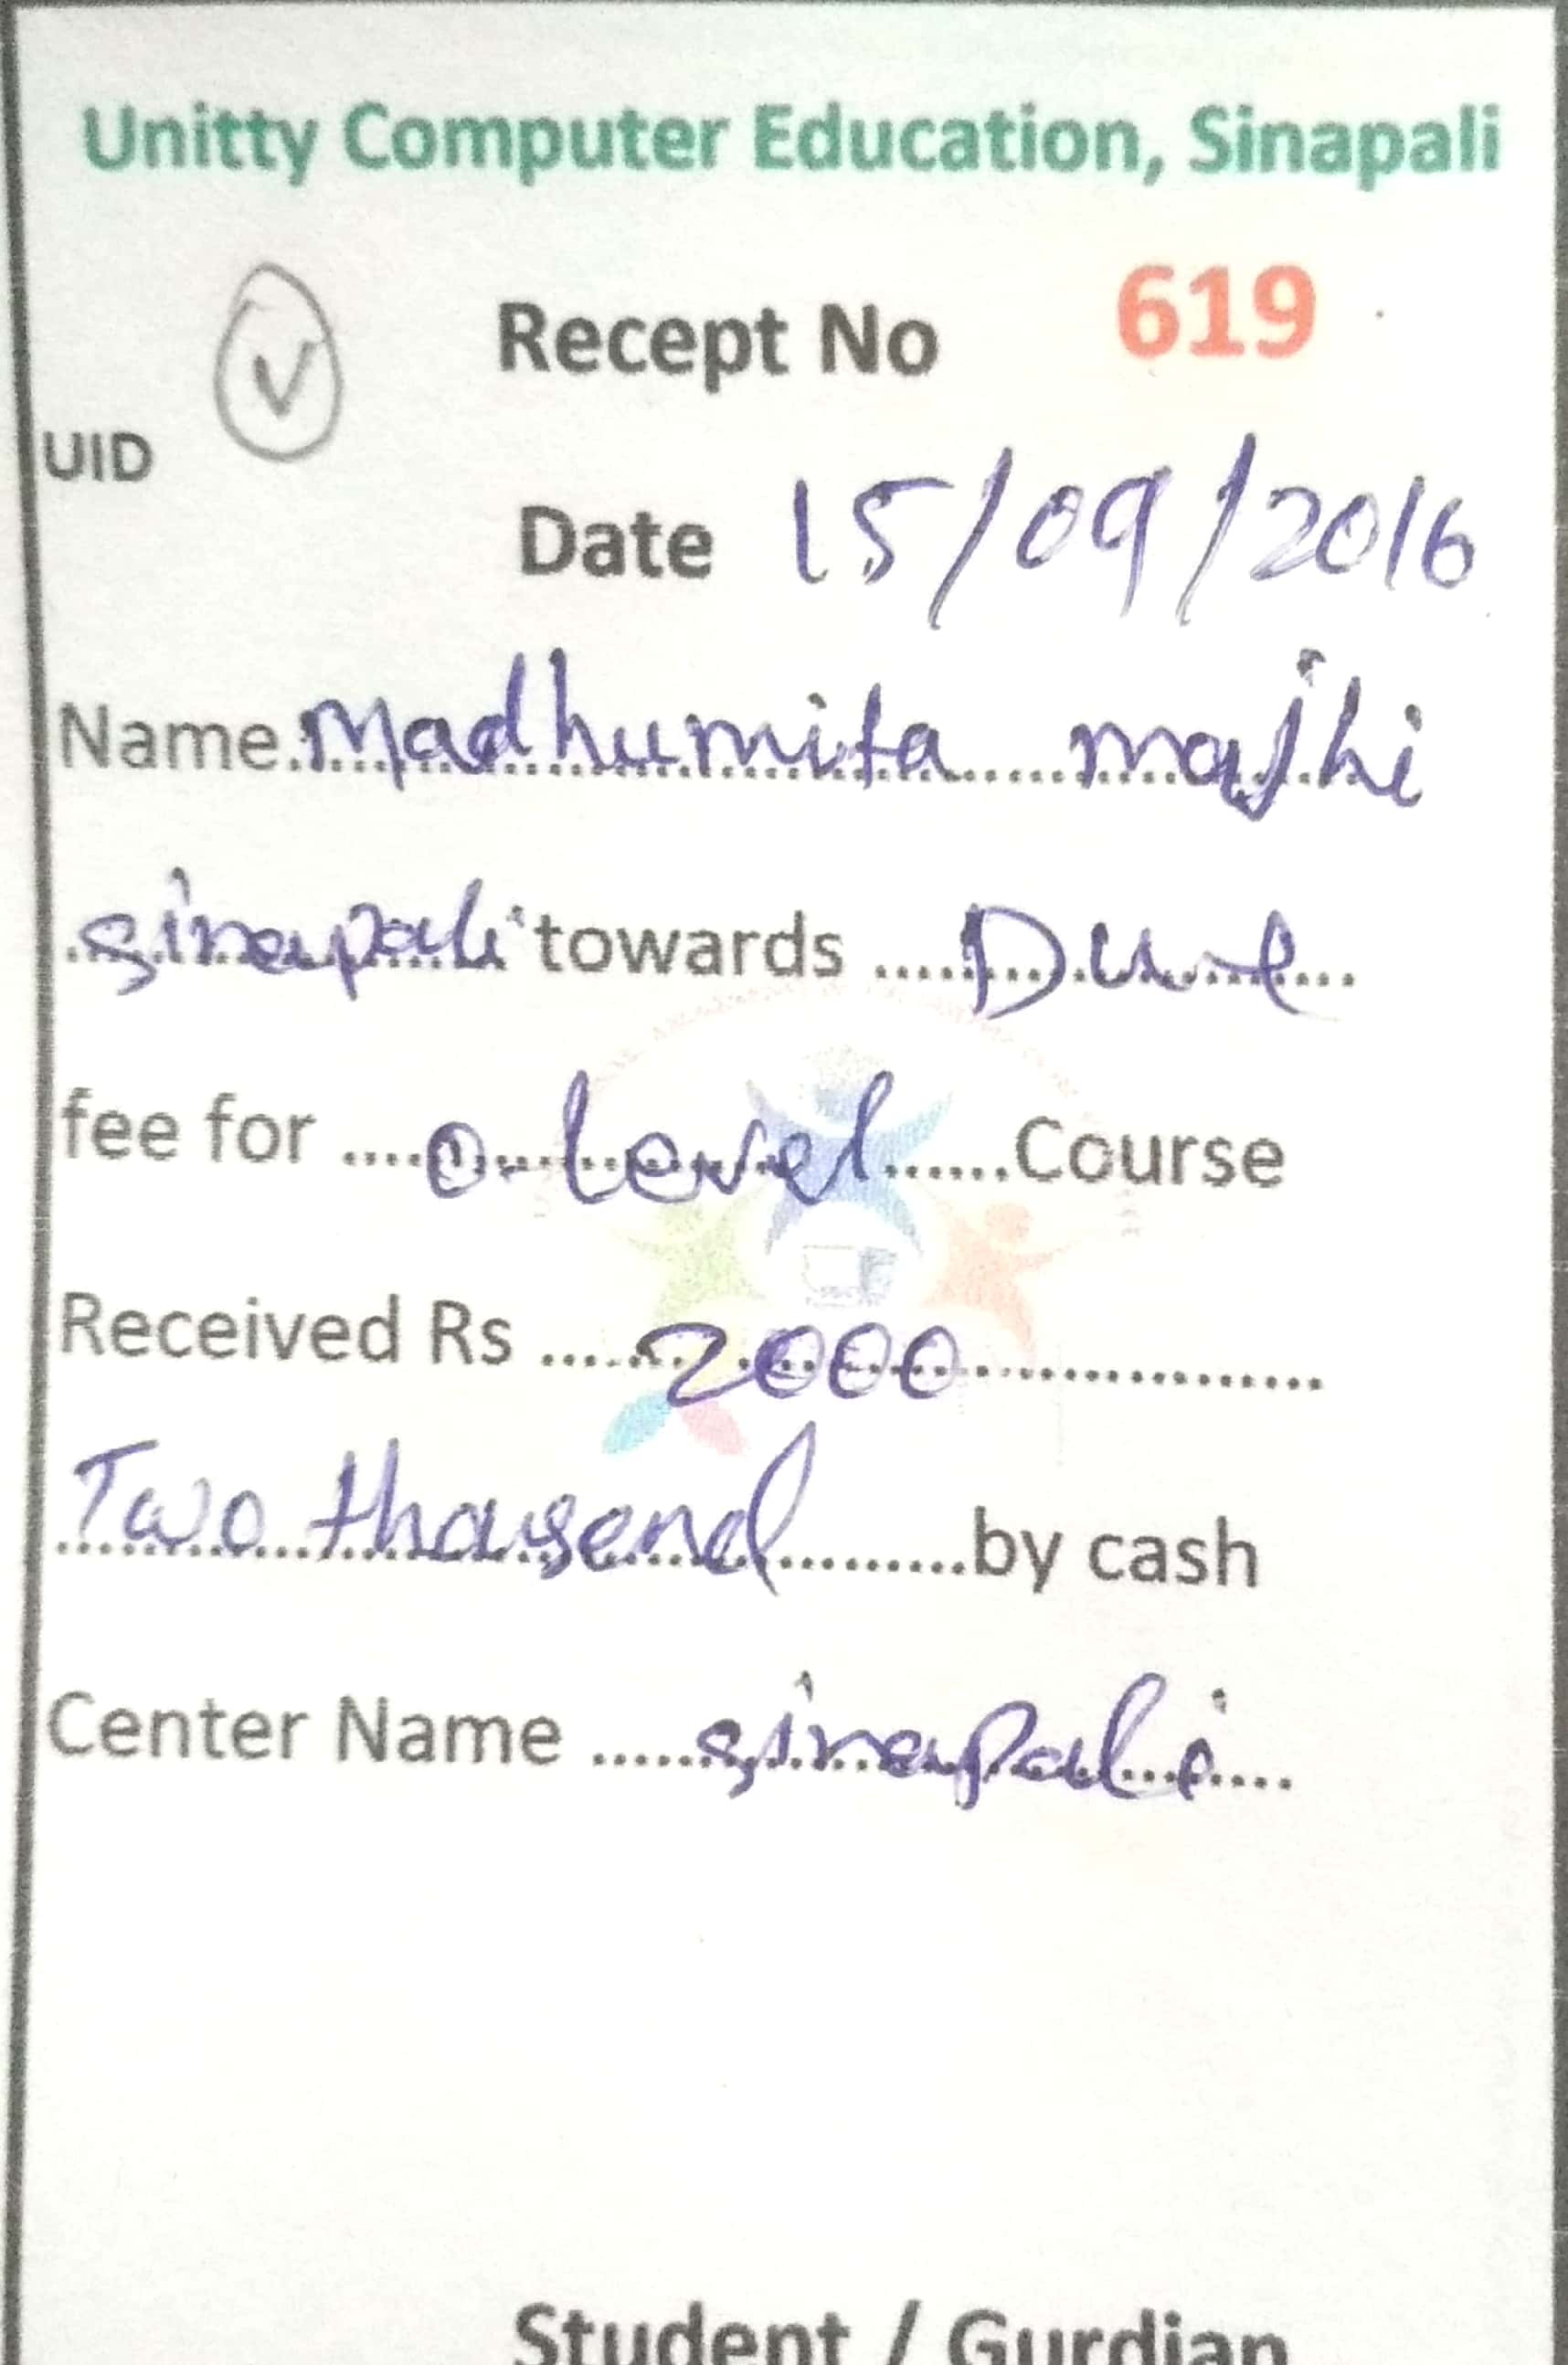 Unitty Computer Education, Sinapali
Recept No 619
UID
Date 15/09/2016
Name Madhumita majhi
sinapali towards ..... Due .....
fee for .... o-Level ......Course
Received Rs ...... 2000 ..........
Two thousend ..........by cash
Center Name ...... sinapali ....
Student / Gurdian